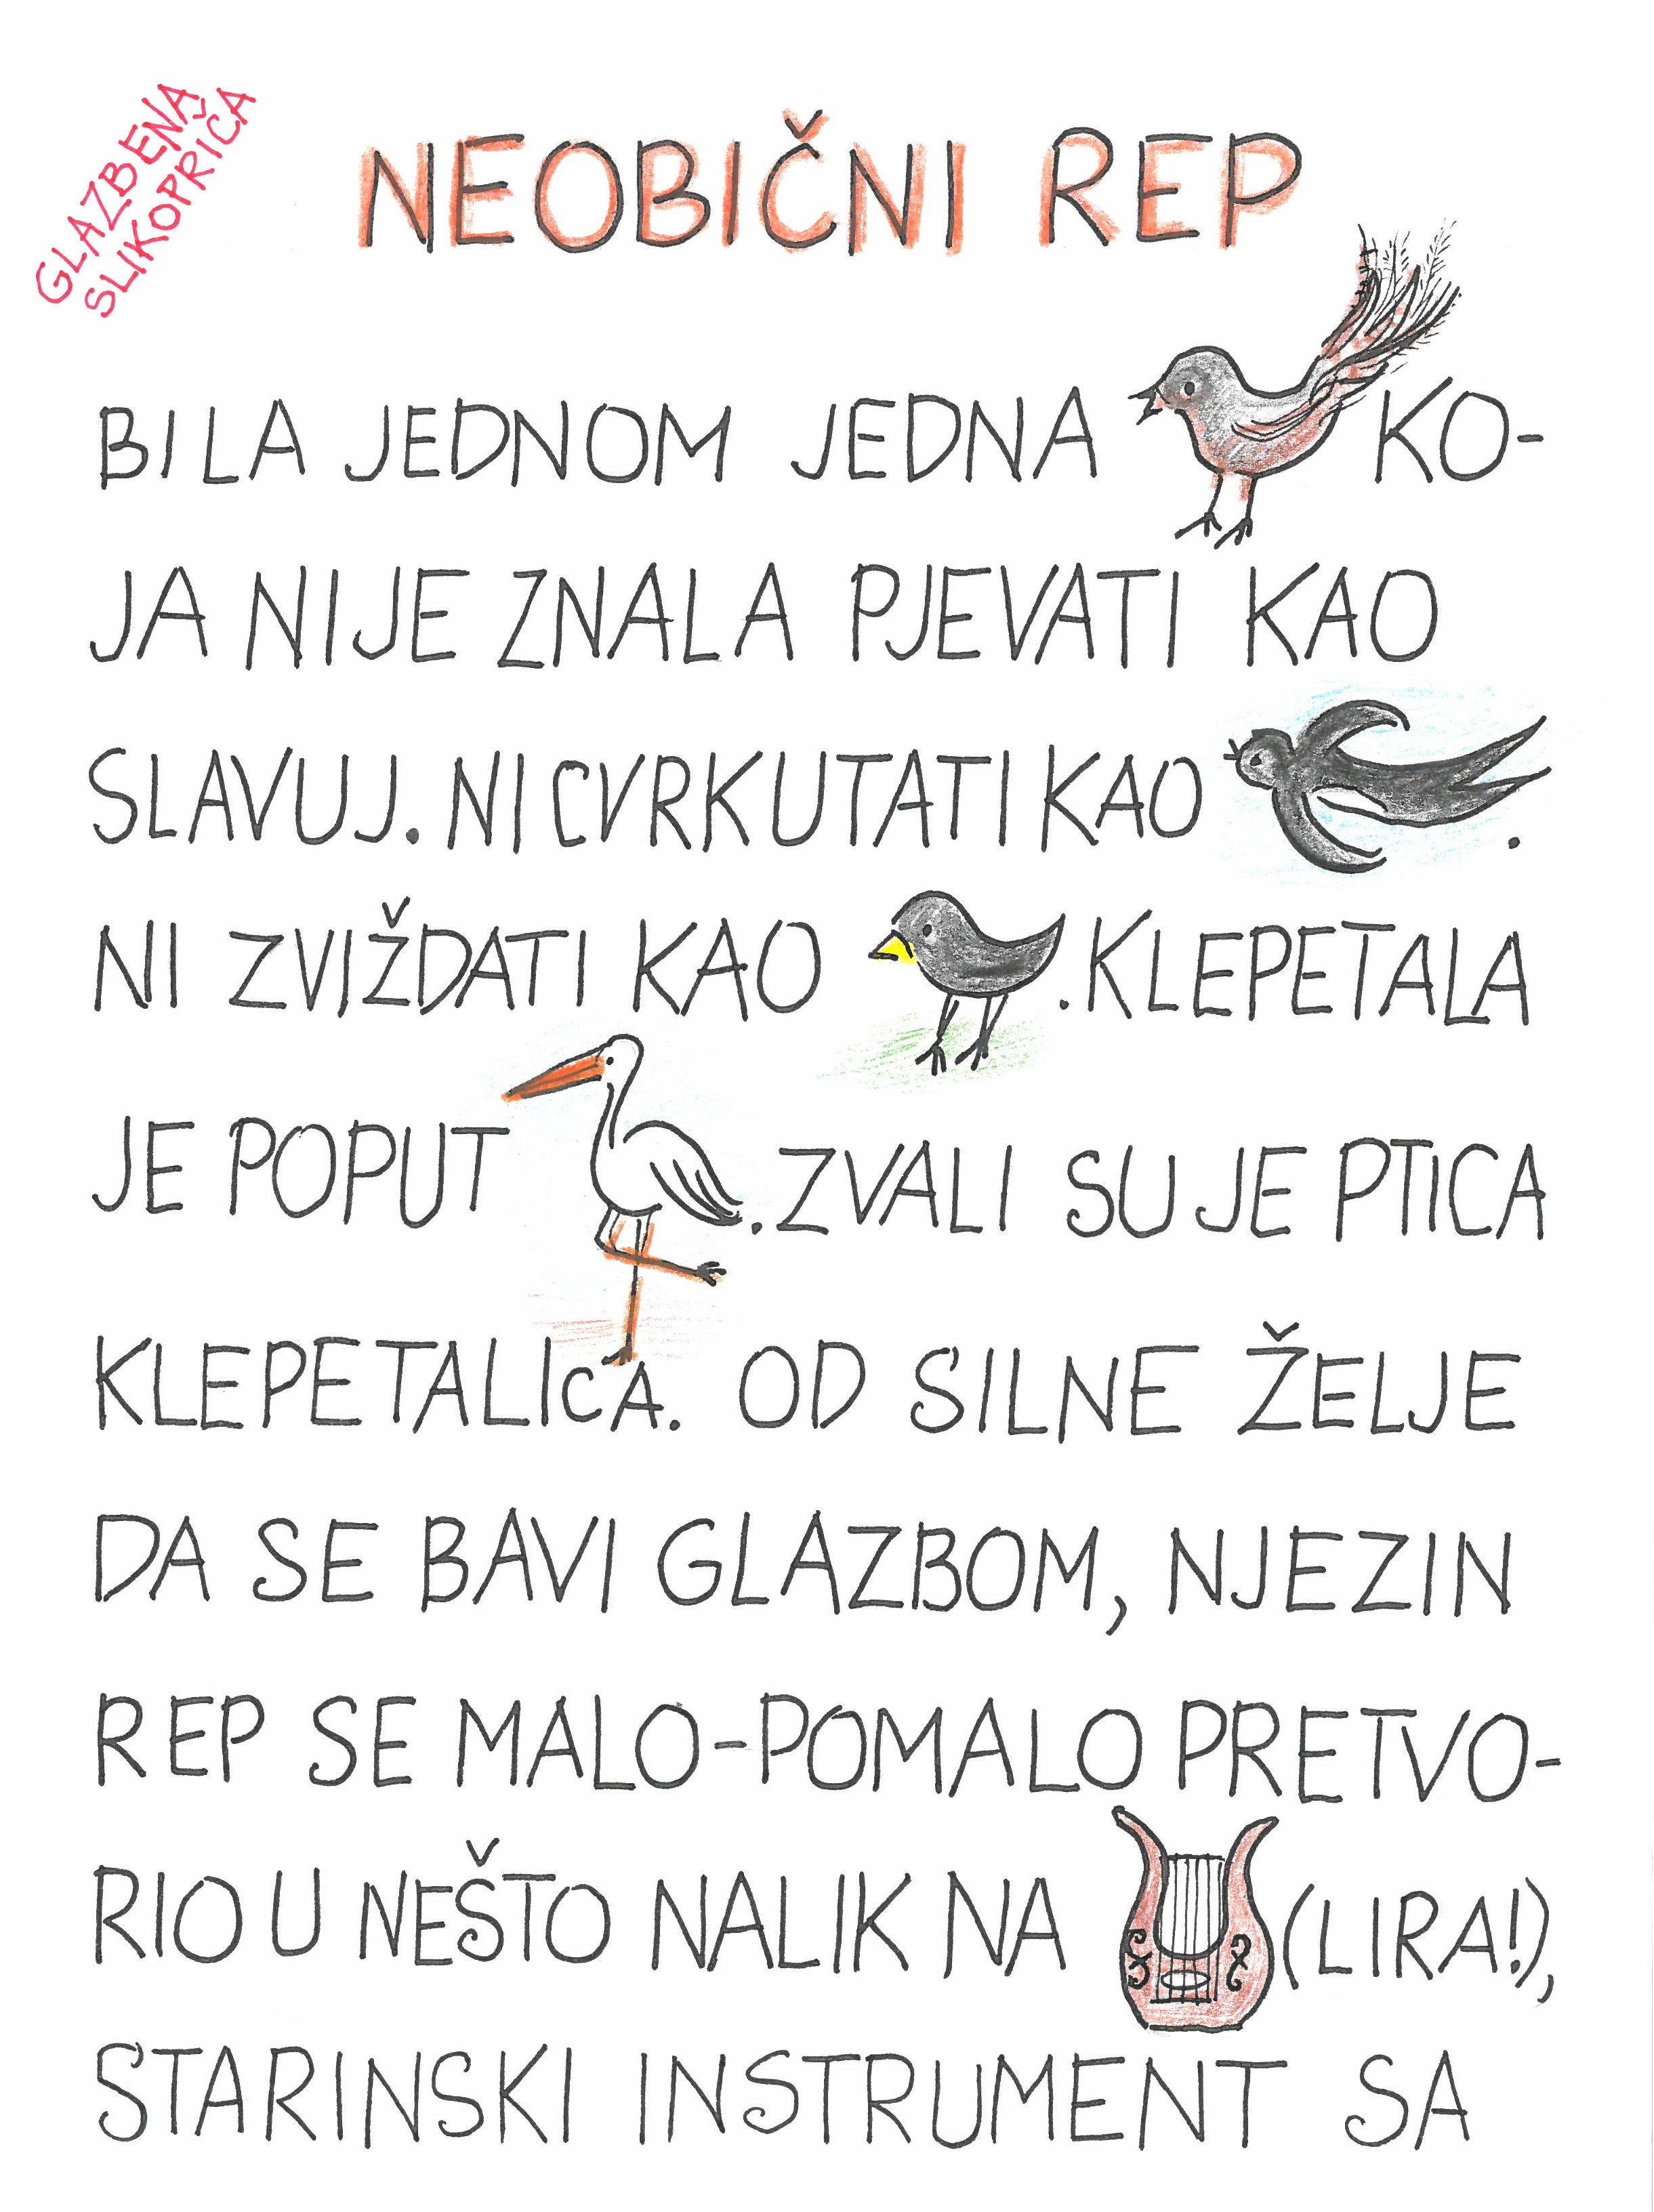 GLAZBENA
SLIKOPRIČA
NEOBIČNI REP
BILA JEDNOM JEDNA KO-
JA NIJE ZNALA PJEVATI KAO
SLAVUJ. NI CVRKUTATI KAO .
NI ZVIŽDATI KAO . KLEPETALA
JE POPUT . ZVALI SU JE PTICA
KLEPETALICA. OD SILNE ŽELJE
DA SE BAVI GLAZBOM, NJEZIN
REP SE MALO-POMALO PRETVO-
RIO U NEŠTO NALIK NA (LIRA!),
STARINSKI INSTRUMENT SA